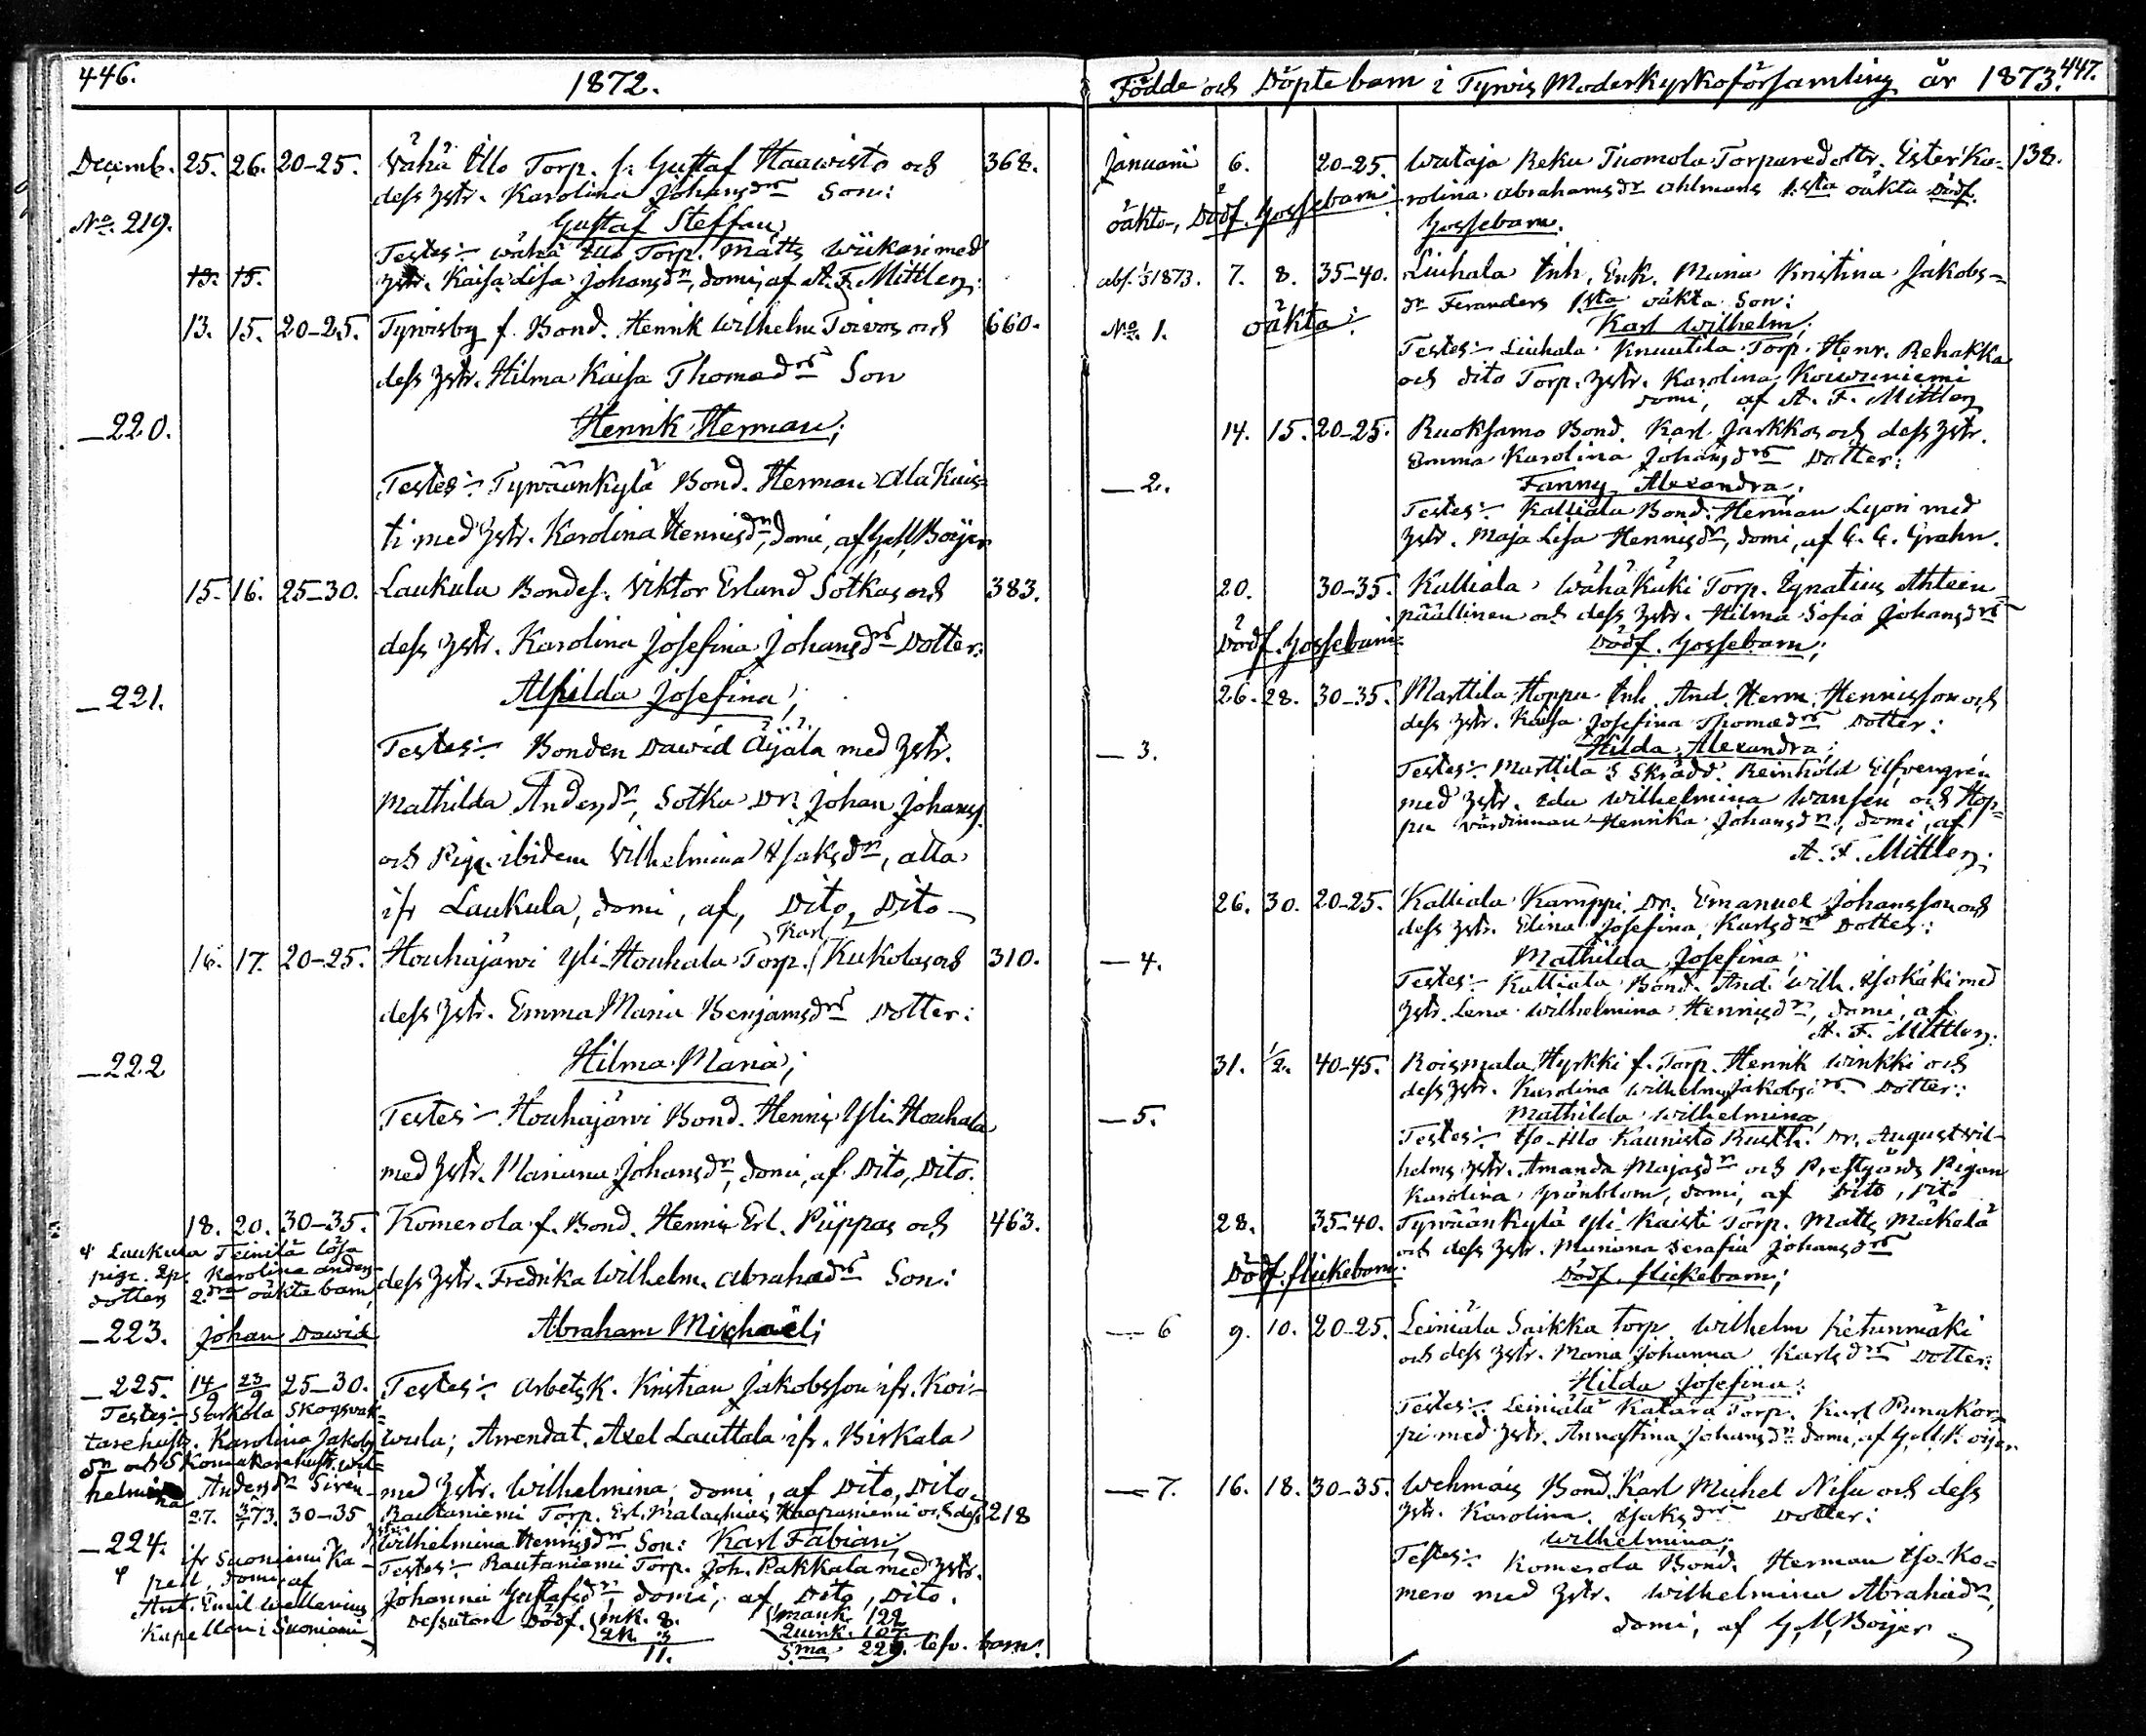 446.
1872.
Decemb. 25. 26. 20-25. Vähä Ullo Torp. s. Gustaf Haawisto och 368.
dess hstr. Karolina Johansdrs Son:
No. 219.
Gustaf Steffan,
Testes:- wähä Ullo Torp. Matts wükari med
13. 15. hstr. Kaisa Lisa Johansdr, domi, af A. F. Mittler;
13. 15. 20-25. Tyrvisby f. Bond. Henrik Wilhelm Toivos och 660.
dess hstr. Hilma Kaisa Thomadrs Son
—220. Henrik Herman;
Testes:- Tyrväänkylä Bond. Herman Ala Kais-
ti med hstr. Karolina Henrisdr, domi, af G. M. Boijer
15. 16. 25-30. Laukula Bondes. Viktor Erland Sotkas och 383.
dess hstr. Karolina Josefina Johansdrs Dotter:
—221. Alfilda Josefina;
Testes:- Bonden Dawid Äijälä med hstr.
Mathilda Andersdr, Sotka Dr. Johan Johans.
och Pig. ibidem Vilhelmina Isaksdr, alla
ifr Laukula, domi, af, Dito, Dito
Karl
16. 17. 20-25. Houhajärwi Yli-Houhala Torp. Kukolas och 310.
dess hstr. Emma Maria Benjamsdrs Dotter:
—222 Hilma Maria;
Testes:- Houhajärwi Bond. Henrik Yli Houhala
med hstr. Mariana Johansdr, domi, af Dito, Dito.
18. 20. 30-35. Komerola f. Bond. Henrik Erl. Piippas och 463.
Laukula Teinilä lösa
pig. Karolina Anders-
dotters 2dra oäkta barn
dess hstr. Fredrika Wilhelm. Abrahadrs Son:
—223. Johan Dawid
Abraham Michaël;
—225. 14/9 23/9 25-30. Testes:- Arbetsk. Kristian Jakobsson ifr. Koi-
Testes:- Sarkola Skogsvak-
tarehustr. Karolina Jakobs
wula; Arrendat. Axel Lauttala ifr. Birkala
dr och Skomakarehustr. Wil-
helmina Andersdr Siren
med hstr. Wilhelmina, domi, af Dito, Dito.
27. 3/1 73. 30-35 Rautaniemi Torp. Erl. Malachias Haapaniemi och dess 218
hstr. Wilhelmina Henrisdrs Son: Karl Fabian
—224.
ifr Suoniemi Ka-
pell, domi af
Testes:- Rautaniemi Torp. Joh. Pakkala med hstr.
Ant. Emil Wellenius
Johanna Gustafsdr, domi, af Dito, Dito.
Kapellan i Suoniemi
Dessutom Dödf. mk. 8.
qk. 3
11.
mank. 122
Quink. 107.
S.ma 229. lefv. barn.
Födde och Döpte barn i Tyrvis Moderkyrkoförsamling år 1873. 447.
Januarii 6. 20-25. Wataja Reku Tuomola Torparedottr. Ester Ka- 138.
rolina Abrahamsdr Ahlmans 1.sta oäkta Dödf.
oäkta, Dödf. Gossebarn
Gossebarn.
abs. 1873. 7. 8. 35-40. Liuhala Inh. Enk. Maria Kristina Jakobs-
dr Feranders 1sta oäkta Son:
No. 1. oäkta: Karl Wilhelm;
Testes:- Liuhala Knuutila Torp. Henr. Rehakka
och dito Torp. hstr. Karolina Kouvuniemi
domi, af A. F. Mittler
14. 15. 20-25. Ruoksamo Bond. Karl Jarkkos och dess hstr.
Emma Karolina Johansdrs Dotter:
—2. Fanny Alexandra,
Testes:- Kalliala Bond. Herman Lyori med
hstr. Maja Lisa Henrisdr, domi, af G. G. Grahn.
20. 30-35. Kalliala Wähäkäki Torp. Ignatius Ahteen-
päällinen och dess hstr. Hilma Sofia Johansdrs
Dödf. Gossebarn Dödf. Gossebarn;
26. 28. 30-35. Marttila Hoppu Inh. And. Herm. Henrisson och
dess hstr. Kaisa Josefina Thomadrs Dotter:
—3. Hilda Alexandra;
Testes:- Marttila S Skrädd. Reinhold Elfvengrén
med hstr. Eda Wilhelmina Wansén och Hop-
pu värdinnan Henrika Johansdr, domi, af
A. F. Mittler;
26. 30. 20-25. Kalliala Kamppi Dr. Emanuel Johansson och
dess hstr. Elina Josefina Karlsdrs Dotter:
—4. Mathilda Josefina;
Testes:- Kalliala Bond. And. Wilh. Isokäki med
hstr. Lena Wilhelmina Henrisdr, domi, af
A. F. Mittler.
31. 1/2. 40-45. Roismala Hyrkki f. Torp. Henrik Winkki och
dess hstr. Karolina Wilhelm. Jakobsdrs Dotter:
—5. Mathilda Wilhelmina
Testes:- Iso-Ilo Kaunisto Rusth. Dr. August Vil-
helms hstr. Amanda Majasdr och Prestgårds Pigan
Karolina Grönblom, domi, af Dito, Dito
28. 35-40. Tyrväänkylä Yli-Kaisti Torp. Matts Mäkelä
och dess hstr. Mariana Serafia Johansdrs
Dödf. flickebarn. Dödf. flickebarn;
—6 9. 10. 20-25. Leiniälä Saikka Torp. Wilhelm Ketunmäki
och dess hstr. Maria Johanna Karlsdrs Dotter:
Hilda Josefina.
Testes:- Leiniälä Katara Torp. Karl Punakor-
pi med hstr. Annastina Johansdr domi, af G. M. Boijer
—7. 16. 18. 30-35. Wehmais Bond. Karl Michel Nisu och dess
hstr. Karolina Isaksdrs Dotter:
Wilhelmina;
Testes:- Komerola Bond. Herman Iso-Ko-
mero med hstr. Wilhelmina Abrahadr,
domi, af G. M. Boijer